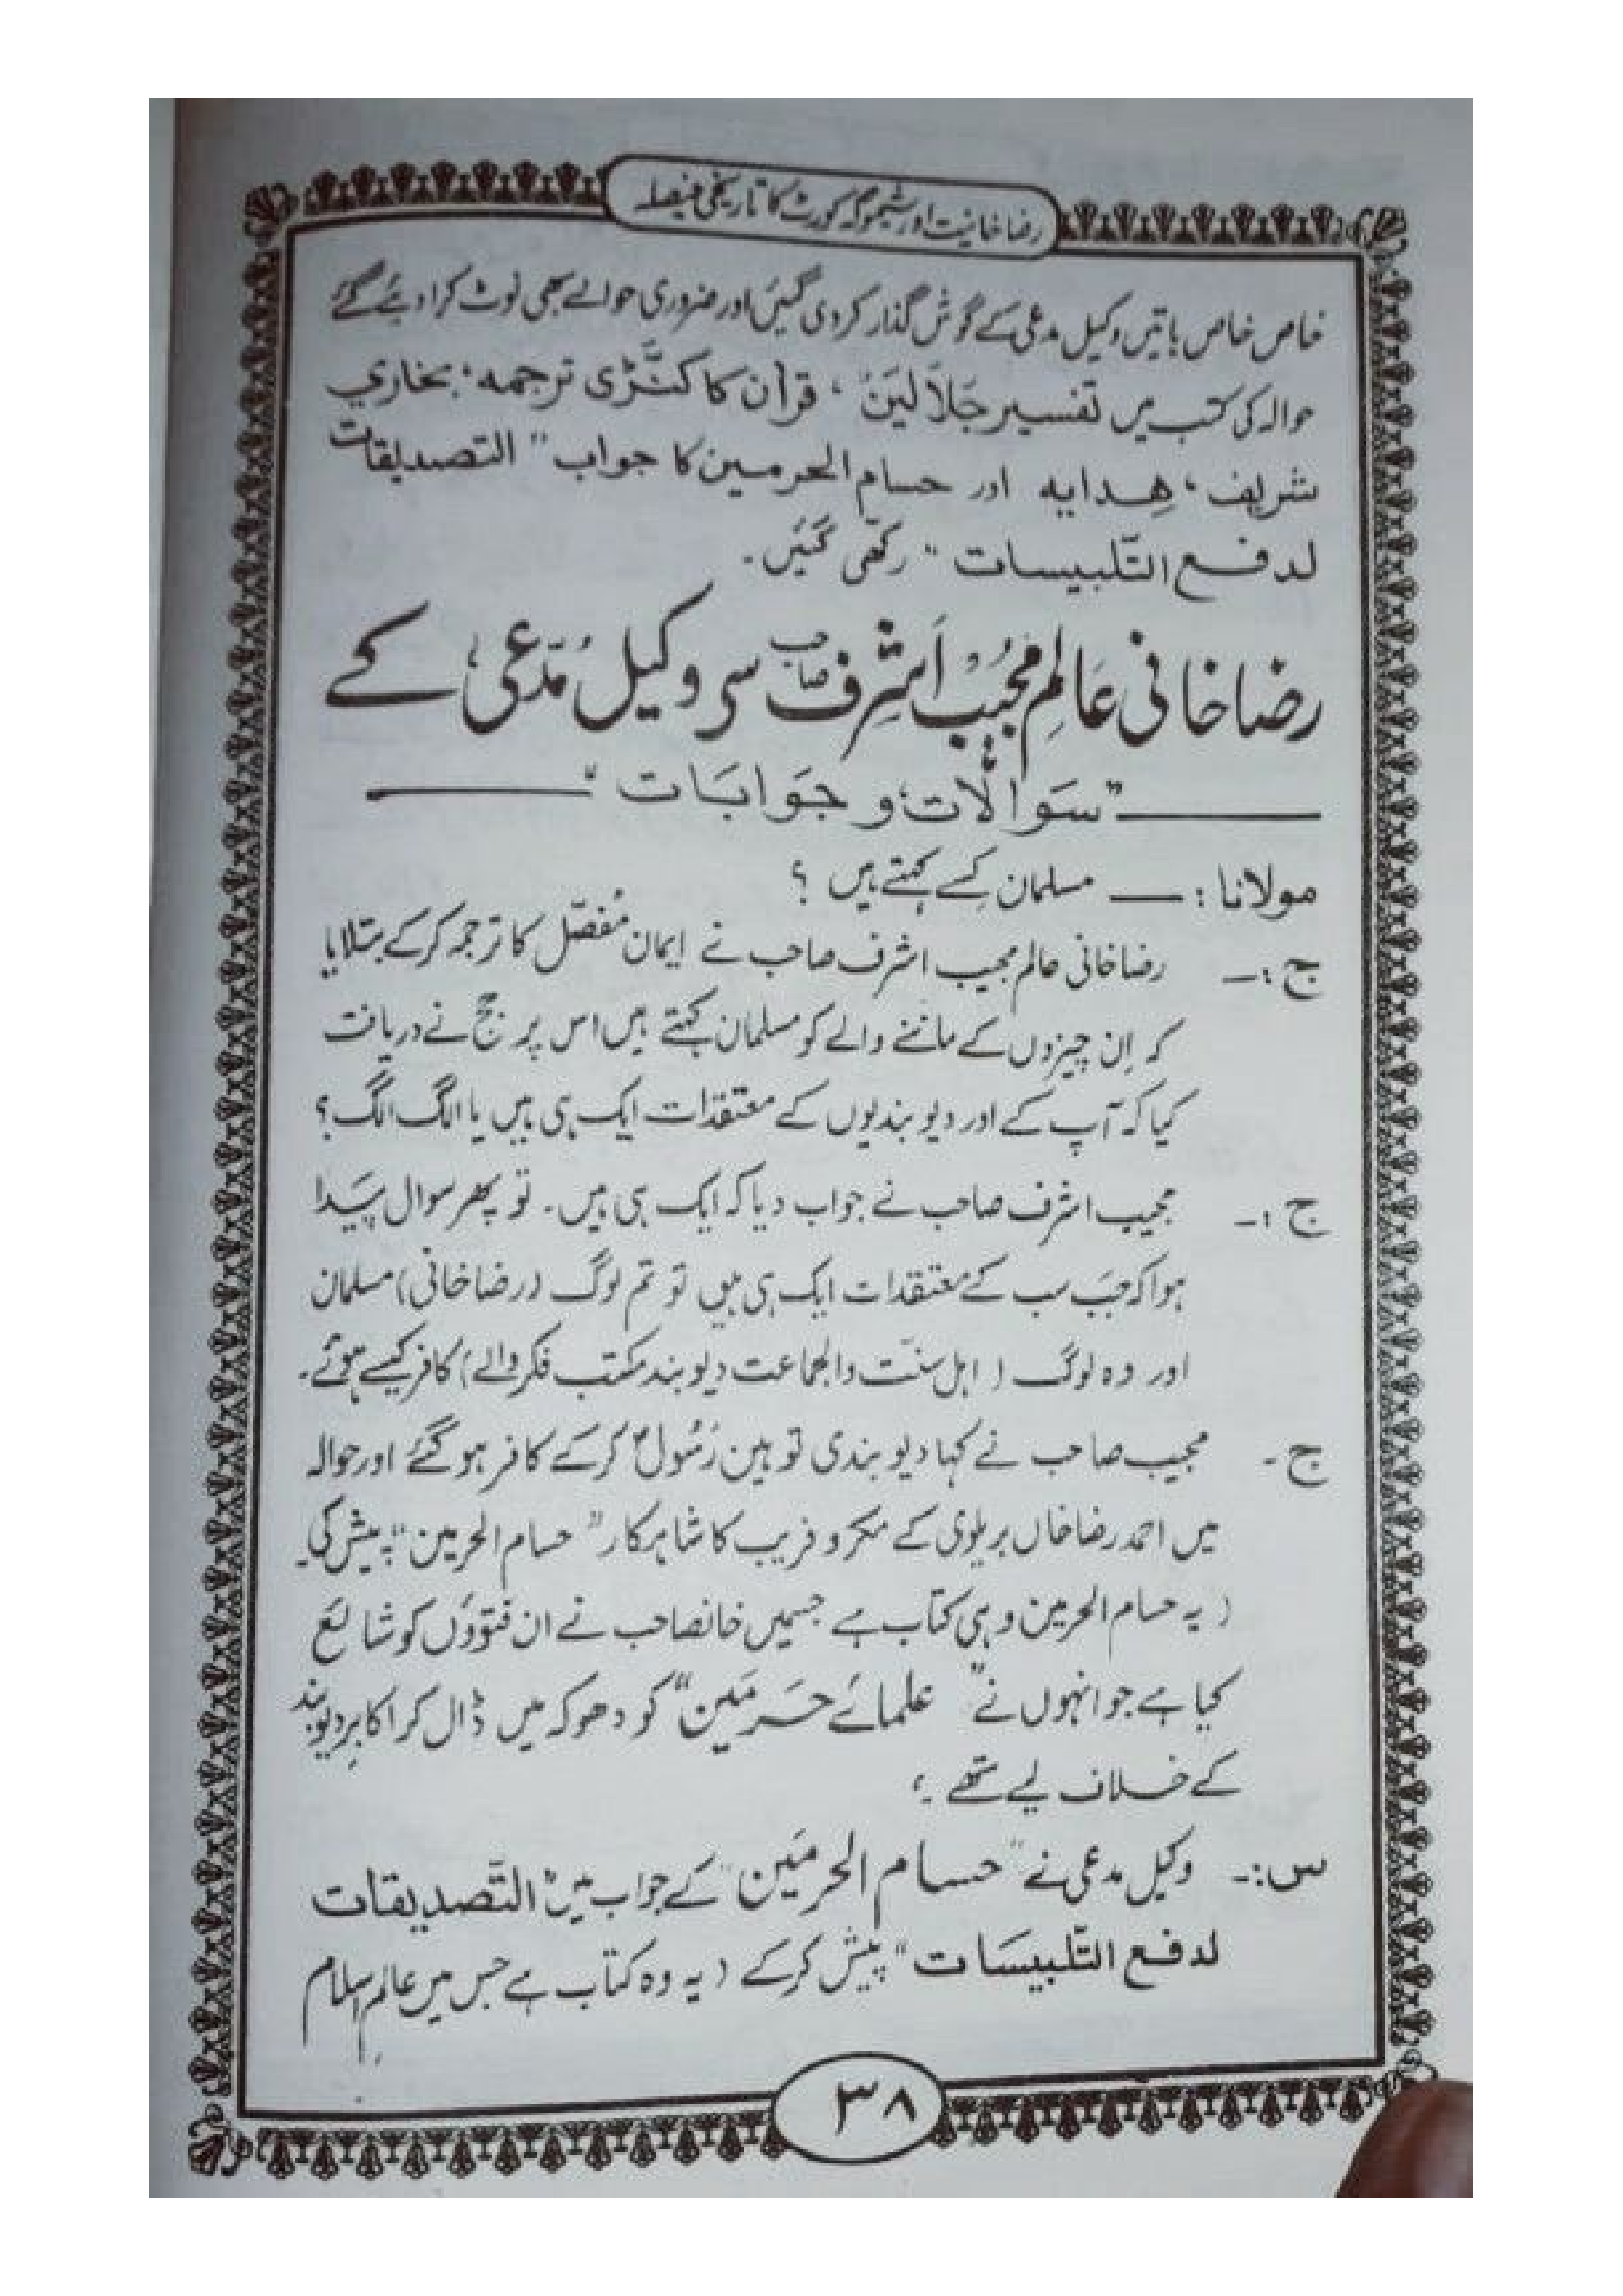 رضاخانیت اور شیموگہ کورٹ کا تاریخی فیصلہ
خاص خاص باتیں وکیل مدعی کے گوش گذار کردی گئیں اور ضروری حوالے بھی نوٹ کرا دیئے گئے
حوالہ کی کتب میں تفسیر جَلَالَیَنْ ، قرآن کا کنَّڑی ترجمہ ، بخاری
شریف ، ھِدایہ اور حسام الحرمین کا جواب " التصدیقات
لدفع التّلبیسات " رکھّی گَئیں ۔
رضاخانی عَالِم مجُیْب اَشرِف صاحب سے وکیل مُدّعی کے
" سَوالَات ، و جَوَابَات "
مولانا : ــــ مسلمان کِسے کہتے ہیں ؟
ج :ـ رضاخانی عالم مجیب اشرف صاحب نے ایمان مُفصّل کا ترجمہ کرکے بتلایا
کہ اِن چیزوں کے ماننے والے کو مسلمان کہتے ہیں اس پر جج نے دریافت
کیا کہ آپ کے اور دیوبندیوں کے معتقدات ایک ہی ہیں یا الگ الگ ؟
ج :ـ مجیب اشرف صاحب نے جواب دیا کہ ایک ہی ہیں ۔ تو پھر سوال پَیدا
ہوا کہ جَب سب کے معتقدات ایک ہی ہیں تو تم لوگ (رضاخانی) مسلمان
اور وہ لوگ ( اہل سنّت والجماعت دیوبند مکتب فکر والے) کافر کیسے ہوئے ۔
ج ۔ مجیب صاحب نے کہا دیوبندی توہین رَسُولؐ کرکے کافر ہوگئے اور حوالہ
میں احمد رضاخاں بریلوی کے مکر و فریب کا شاہکار " حسام الحرمین " پیش کی ۔
( یہ حسام الحرمین وہی کتاب ہے جسمیں خانصاحب نے ان فتوؤں کو شائع
کیا ہے جو انہوں نے " علمائے حَرمَین " کو دھوکہ میں ڈال کر اکابرِ دیوبند
کے خلاف لیے تھے ۔
س :ـ وکیل مدعی نے " حسام الحرمَین " کے جواب میں " التّصدیقات
لدفع التّلبیسَات " پیش کرکے ( یہ وہ کتاب ہے جس میں عالمِ اسلام
۳۸